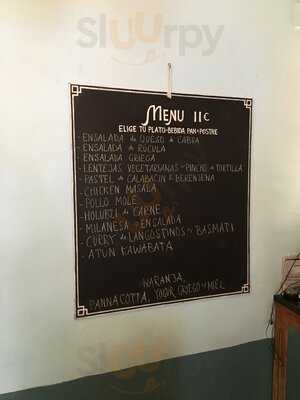 Sluurpy
MENU 11€
ELIGE TU PLATO-BEBIDA PAN+POSTRE
- ENSALADA de QUESO de CABRA
- ENSALADA de RÚCULA
- ENSALADA GRIEGA
- LENTEJAS VEGETARIANAS y PINCHO de TORTILLA
- PASTEL de CALABACIN & BERENJENA
- CHICKEN MASALA
- POLLO MOLE
- HOLUBLI de CARNE
- MILANESA y ENSALADA
- CURRY de LANGOSTINOS y BASMATI
- ATUN KAWABATA
NARANJA,
PANNACOTTA, YOGUR GRIEGO y MIEL